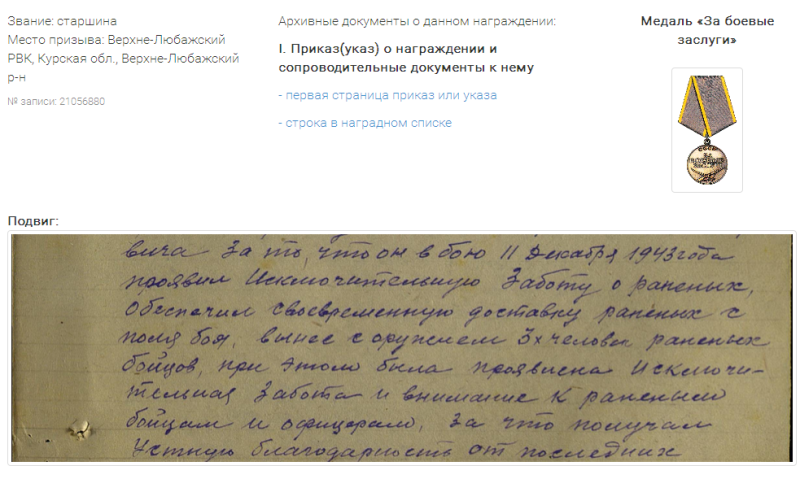 Звание: старшина
Место призыва: Верхне-Любажский
РВК, Курская обл., Верхне-Любажский
р-н
№ записи: 21056880
Архивные документы о данном награждении:
I. Приказ(указ) о награждении и
сопроводительные документы к нему
- первая страница приказ или указа
- строка в наградном списке
Медаль «За боевые
заслуги»
Подвиг:
вича За то, что он в бою 11 Декабря 1943 года
проявил Исключительную Заботу о раненых,
Обеспечил своевременную доставку раненых с
поля боя, вынес с оружием 3х человек раненых
бойцов, при этом была проявлена Исключи-
тельная Забота и внимание К раненым
бойцам и офицерам, За что получал
Устную благодарность от последних